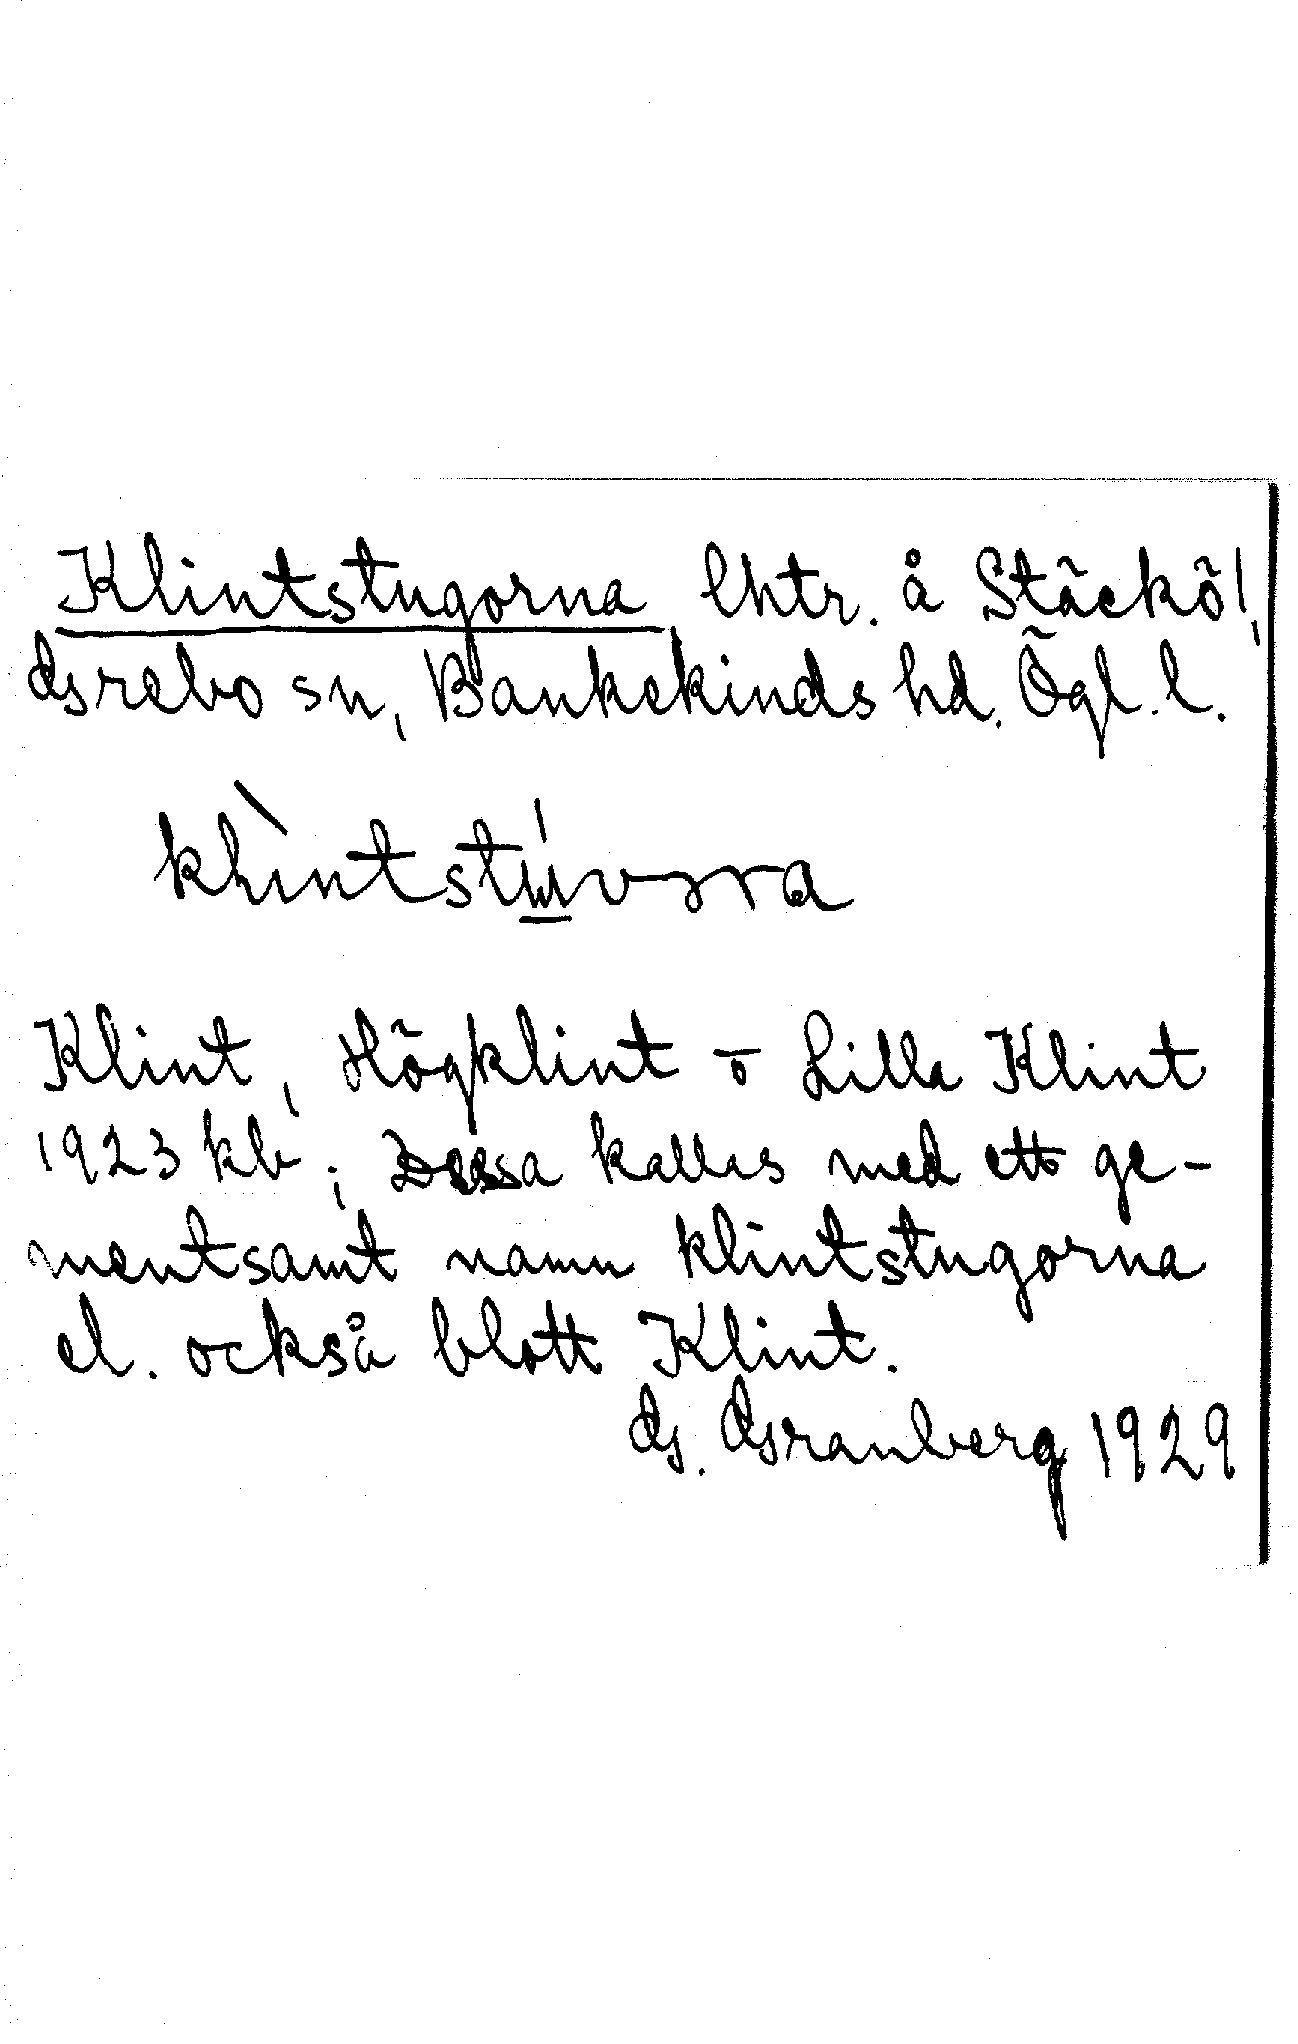 Klintstugorna, lhtr. å Stäckö!,
Grebo sn, Bankekinds hd. Ögl. l.
Klint, Högklint o Lilla Klint
1923 kb; Dessa kallas med ett ge-
mentsamt namn klintstugorna
el. också blott Klint.
G. Granberg 1929